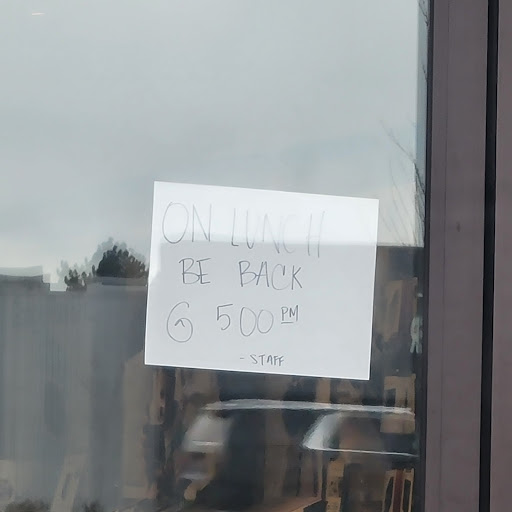 ON LUNCH
BE BACK
@ 500 PM
- STAFF